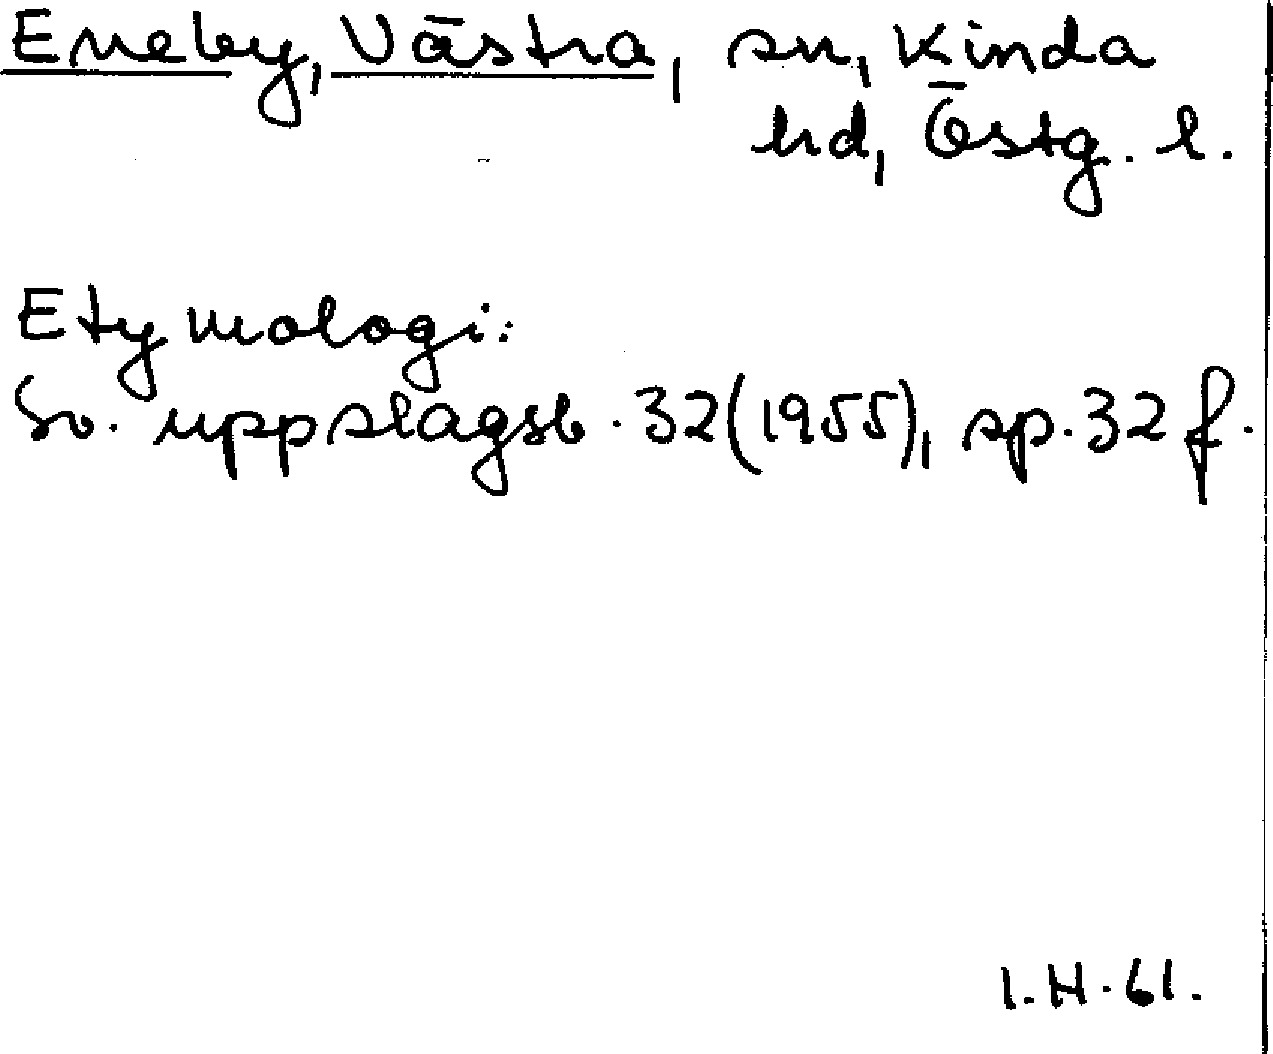 Eneby, Västra, sn, Kinda
hd, Östg. l.
Etymologi:
Sv. uppslagsb. 32(1955), sp. 32 f.
I.H. 61.